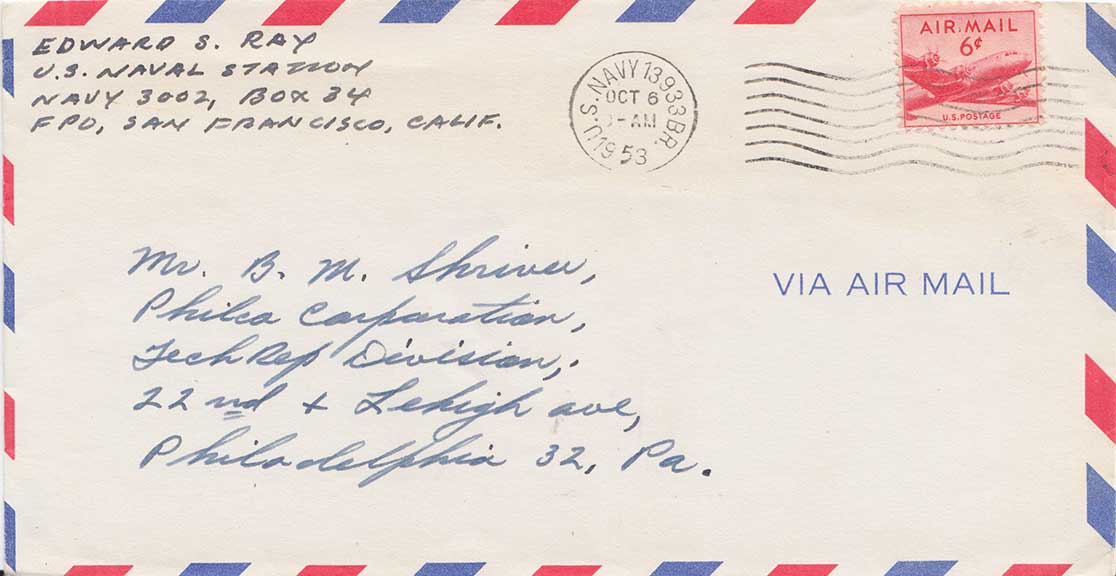 EDWARD S. RAY
U.S. NAVAL STATION
NAVY 3002, BOX 34
FPO, SAN FRANCISCO, CALIF.
U.S. NAVY 13933 BR.
OCT 6
-AM
1953
AIR MAIL
6¢
U.S. POSTAGE
VIA AIR MAIL
Mr. B. M. Shriver,
Philco Corporation,
TechRep Division,
22nd + Lehigh ave,
Philadelphia 32, Pa.